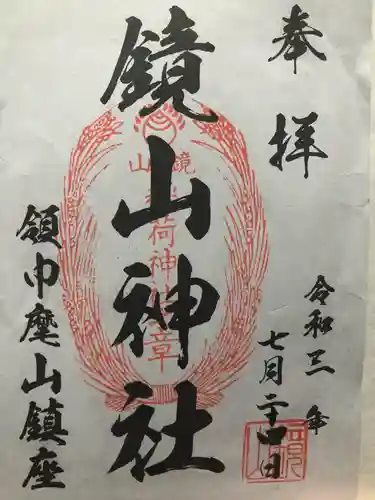 奉拝
令和三年
七月二十四日
鏡山神社
領巾麾山鎮座
鏡山
稲荷神社章